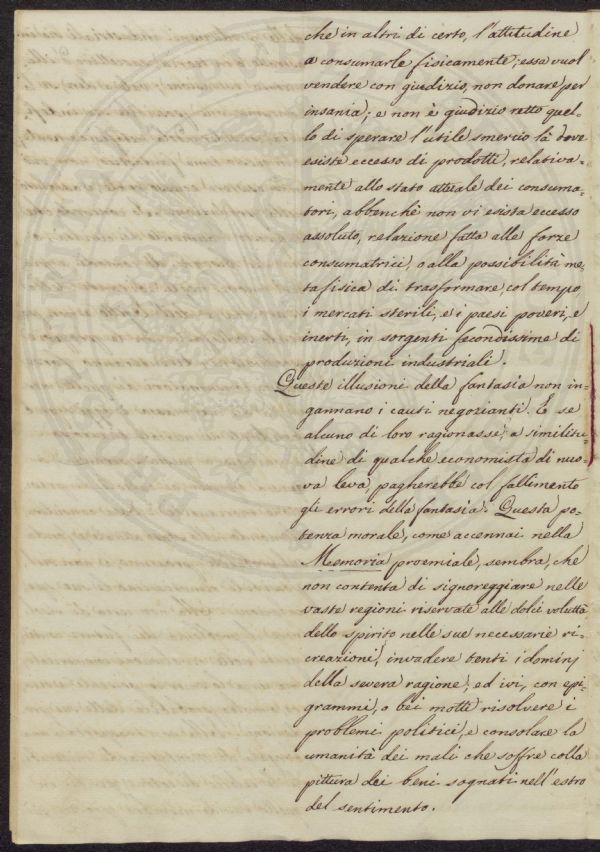 che in altri di certo, l'attitudine
a consumarle fisicamente; essa vuol
vendere con giudizio, non donare per
insania; e non è giudizio retto quel-
lo di sperare l'utile smercio là dove
esiste eccesso di prodotti, relativa-
mente allo stato attuale dei consuma-
tori, abbenchè non vi esista eccesso
assoluto, relazione fatta alle forze
consumatrici, o alla possibilità me-
tafisica di trasformare, col tempo,
i mercati sterili, e i paesi poveri, e
inerti, in sorgenti fecondissime di
produzioni industriali.
Queste illusioni della fantasia non in-
gannano i cauti negozianti. E se
alcuno di loro ragionasse, a similitu-
dine di qualche economista di nuo-
va leva, pagherebbe col fallimento
gli errori della fantasia. Questa po-
tenza morale, come accennai nella
Memoria proemiale, sembra, che
non contenta di signoreggiare nelle
vaste regioni riservate alle dolci voluttà
dello spirito nelle sue necessarie ri-
creazioni, invadere tenti i dominj
della severa ragione, ed ivi, con epi-
grammi, o bei motti risolvere i
problemi politici, e consolare la
umanità dei mali che soffre colla
pittura dei beni sognati nell'estro
del sentimento.